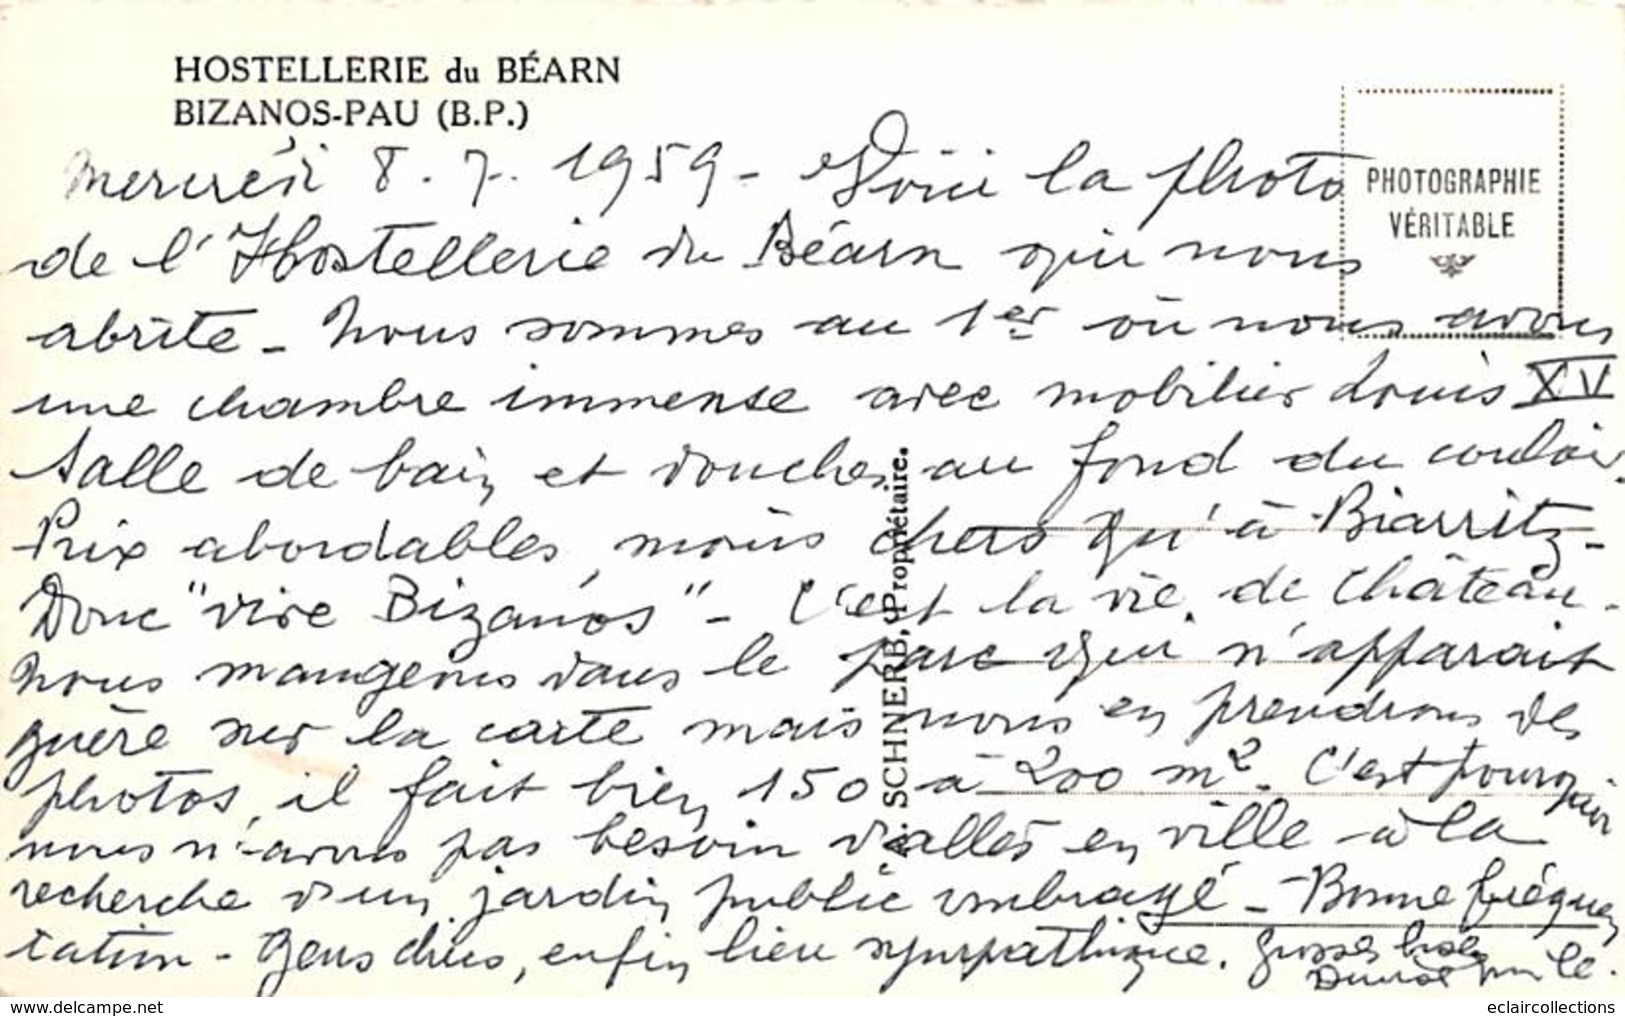 HOSTELLERIE du BÉARN
BIZANOS-PAU (B.P.)
PHOTOGRAPHIE
VÉRITABLE
A. SCHNERB, Propriétaire.
Mercredi 8.7.1959 - Voici la photo
de l'Hostellerie du Béarn qui nous
abrite - Nous sommes au 1er où nous avons
une chambre immense avec mobilier Louis XV
Salle de bain et douches au fond du couloir.
Prix abordables, moins chers qu'à Biarritz -
Donc "vive Bizanos" - C'est la vie de château.
Nous mangeons dans le parc qui n'apparait
guère sur la carte mais nous en prendrons des
photos, il fait bien 150 à 200 m². C'est pourquoi
nous n'avons pas besoin d'aller en ville à la
recherche d'un jardin public ombragé - Bonne fréquen
tation - Gens chics, enfin lieu sympathique. Grosses bises
delcampe.net
eclaircollections